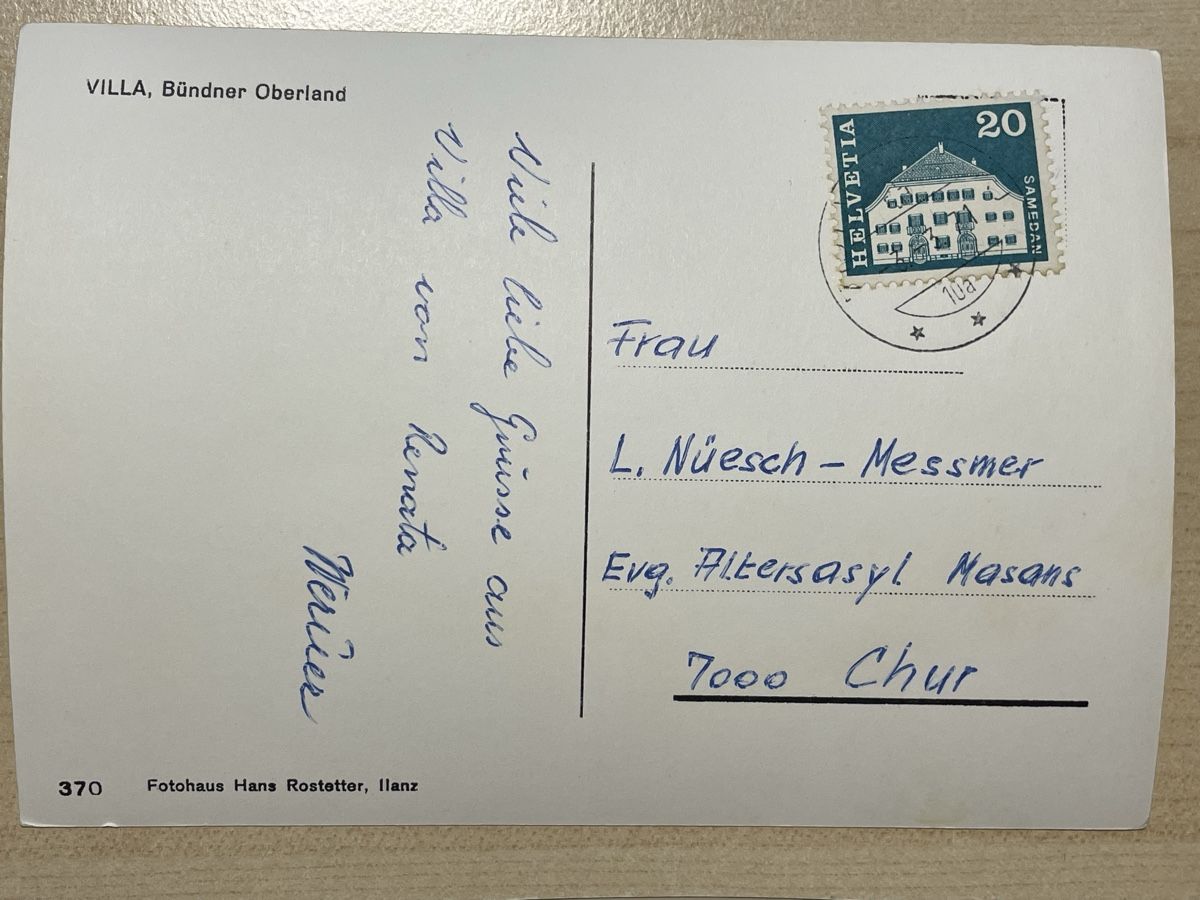 VILLA, Bündner Oberland
Viele liebe Grüsse aus
Villa von Renata
Werner
370 Fotohaus Hans Rostetter, Ilanz
HELVETIA
20
SAMEDAN
10a
Frau
L. Nüesch - Messmer
Evg. Altersasyl Masans
7000 Chur